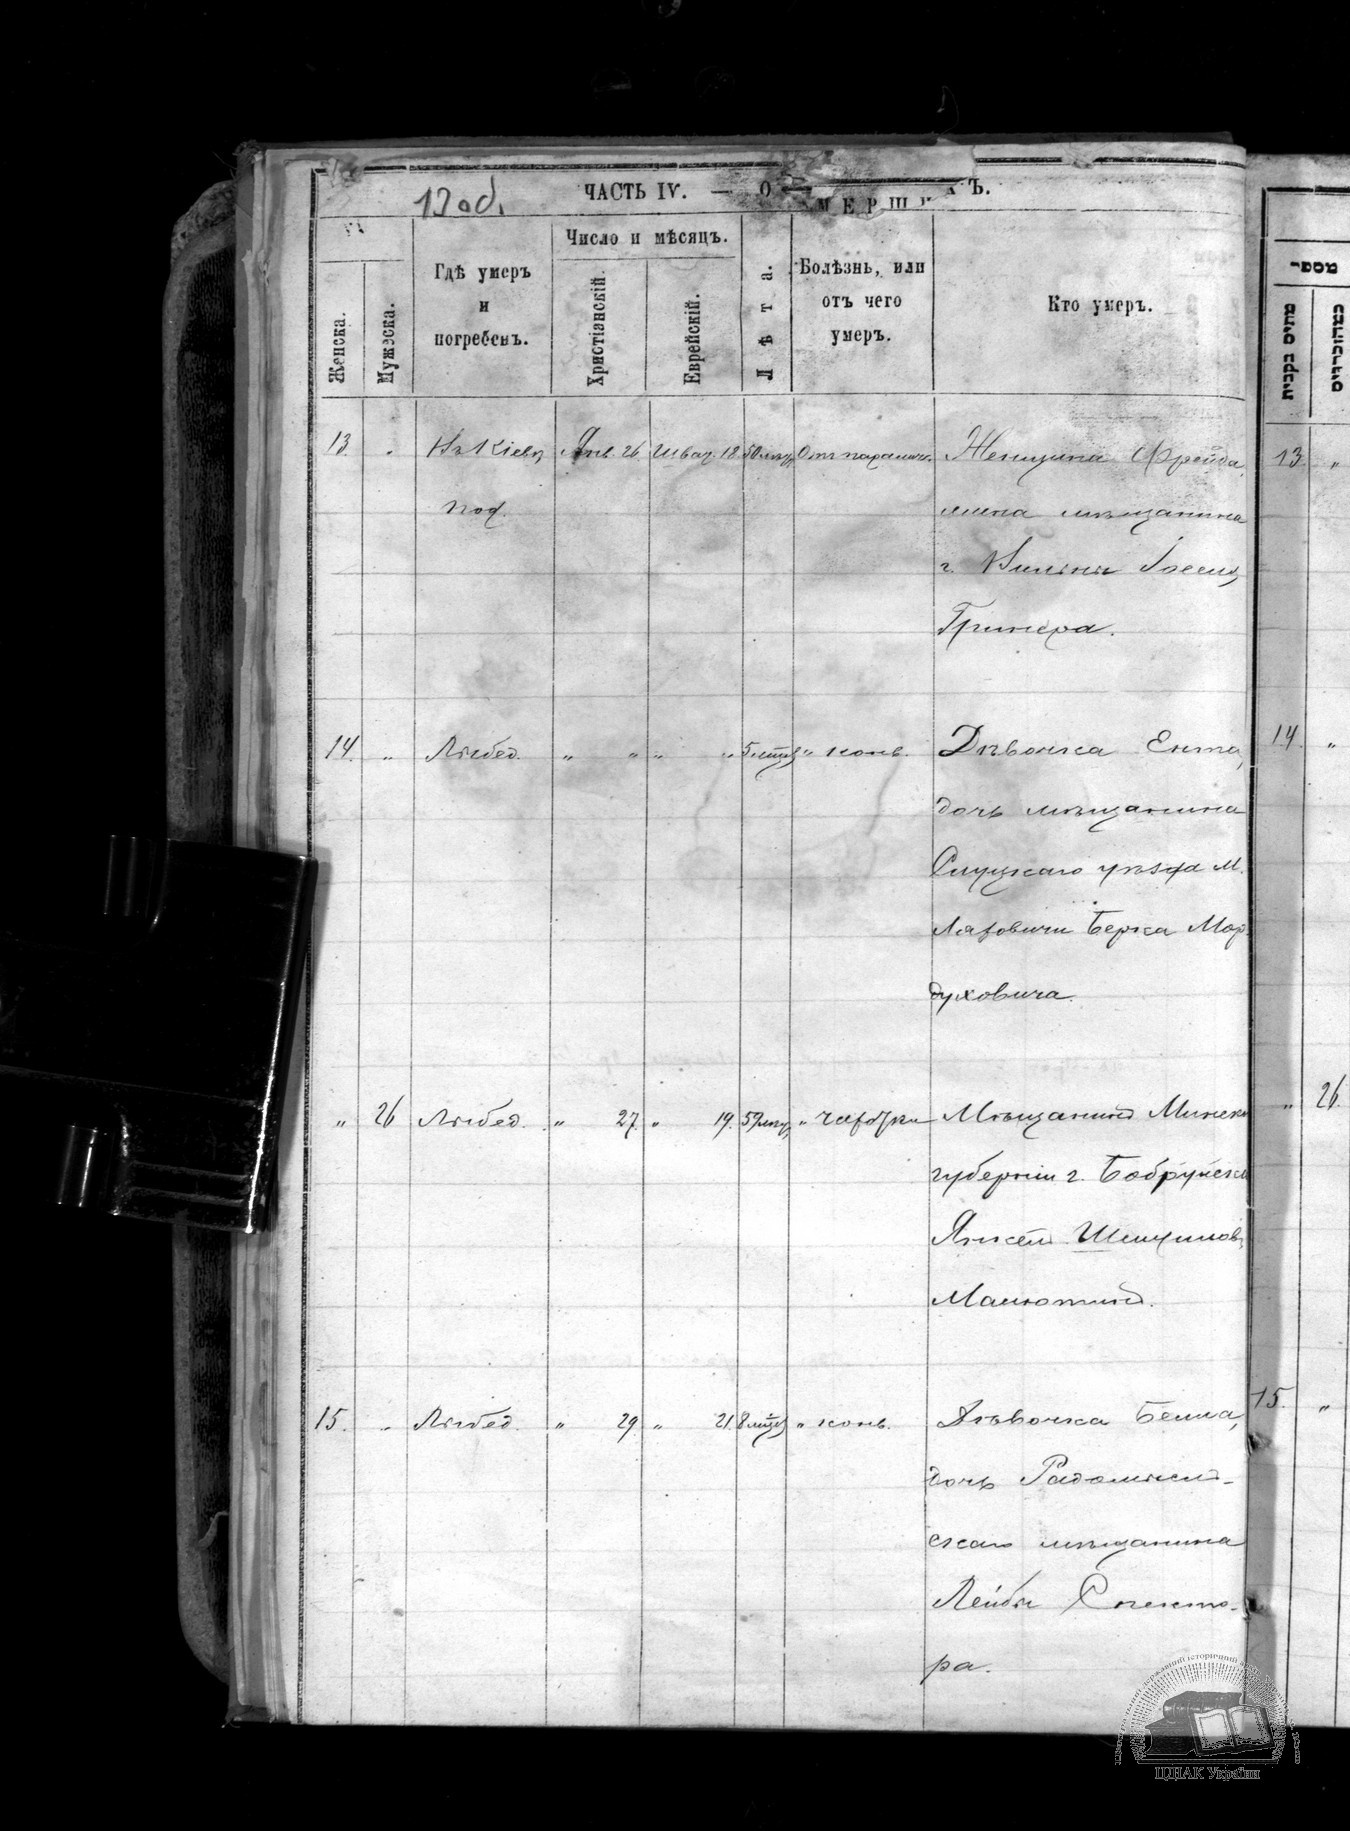 13 об.
ЧАСТЬ IV. — О
МЕРШИ ХЪ.
Женска.
Мужеска.
Гдѣ умеръ и погребенъ.
Число и мѣсяцъ.
Христіанскій.
Еврейскій.
Лѣта.
Болѣзнь, или отъ чего умеръ.
Кто умеръ.
מספר
מתים נקבות
13. „ Въ Кіевѣ Янв. 26 Шват. 18 50 лѣтъ Отъ паралич. Женщина Фрейда,
под. жена мѣщанина
г. Вильны Іосель
Гринера.
14. „ Лыбед. „ „ „ „ 5 мѣс. „ конв. Дѣвочка Ента,
дочь мѣщанина
Слуцкаго уѣзда м.
Ляховичи Берка Мор-
духовича.
„ 26 Лыбед. „ 27. „ 19. 59 лѣтъ „ чахотки Мѣщанинъ Минской
губерніи г. Бобруйска
Янкель Шмуилов.
Малютинъ.
15. „ Лыбед. „ 29 „ 21. 8 мѣс. „ конв. Дѣвочка Бейла,
дочь Радомысль-
скаго мѣщанина
Лейбы Спекто-
ра.
13 „
14. „
„ 26.
15. „
ЦДІАК України